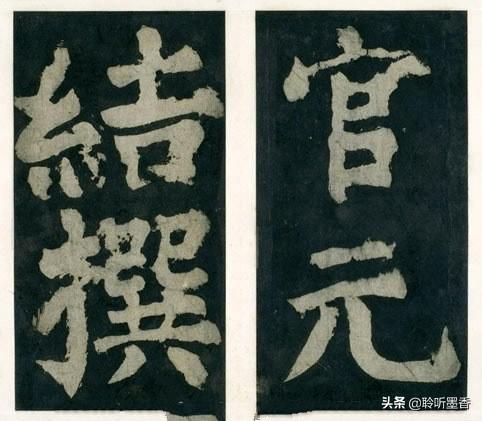 官元
結撰
头条 @聆听墨香